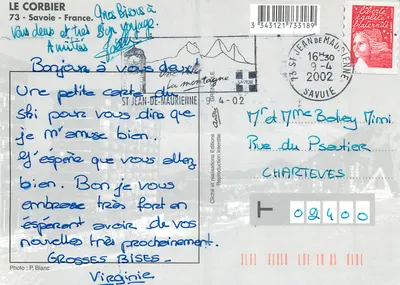 LE CORBIER
73 - Savoie - France.
Gros Bisous à
vous deux et très Bon voyage.
Amitiés
3 343121 733189
Bonjour à vous deux!
Une petite carte du
ski pour vous dire que
je m'amuse bien.
J'espère que vous allez
bien. Bon je vous
embrasse très fort en
espérant avoir de vos
nouvelles très prochainement.
GROSSES BISES.
Virginie
Photo : P. Blanc
la montagne
SAVOIE
ST JEAN-DE-MAURIENNE 9-4-02
Reproduction interdite
73 ST JEAN-DE-MAURIENNE
16H30
9-4
2002
SAVOIE
liberté
égalité
fraternité
Mr et Mme Mimi
Rue du
CHARTEVES
02400